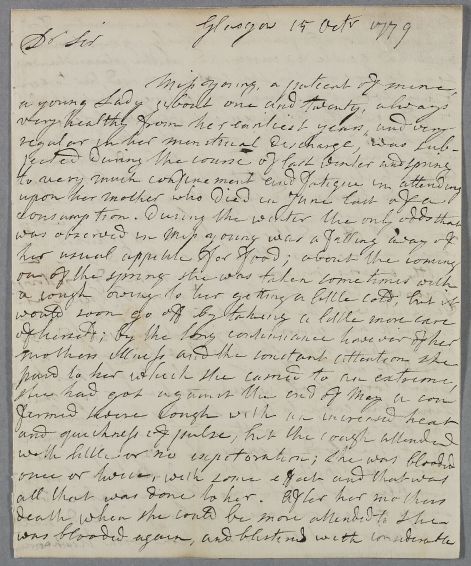 Glasgow 15 Octr 1779
Dr Sir
Miss Young, a patient of mine,
a young Lady about one and twenty, always
very healthy from her earliest years, and very
regular in her menstrual discharge, was sub-
jected during the course of last winter and spring
to very much confinement and fatigue in attending
upon her mother who died in June last of a
consumption. During the winter the only odds that
was observed in Miss Young was a falling away of
her usual appetite for food; about the coming
on of the spring she was taken sometimes with
a cough owing to her getting a little cold, but it
would soon go off by taking a little more care
of herself; by the long continuance however of her
mothers illness and the constant attention she
paid to her which she carried to an extreme,
she had got against the end of May a con
firmed severe Cough with an increased heat
and quickness of pulse, but the cough attended
with little or no expectoration; she was blooded
once or twice, with some effect and that was
all that was done to her. After her mothers
death when she could be more attended to she
was blooded again, and blistered with considerable